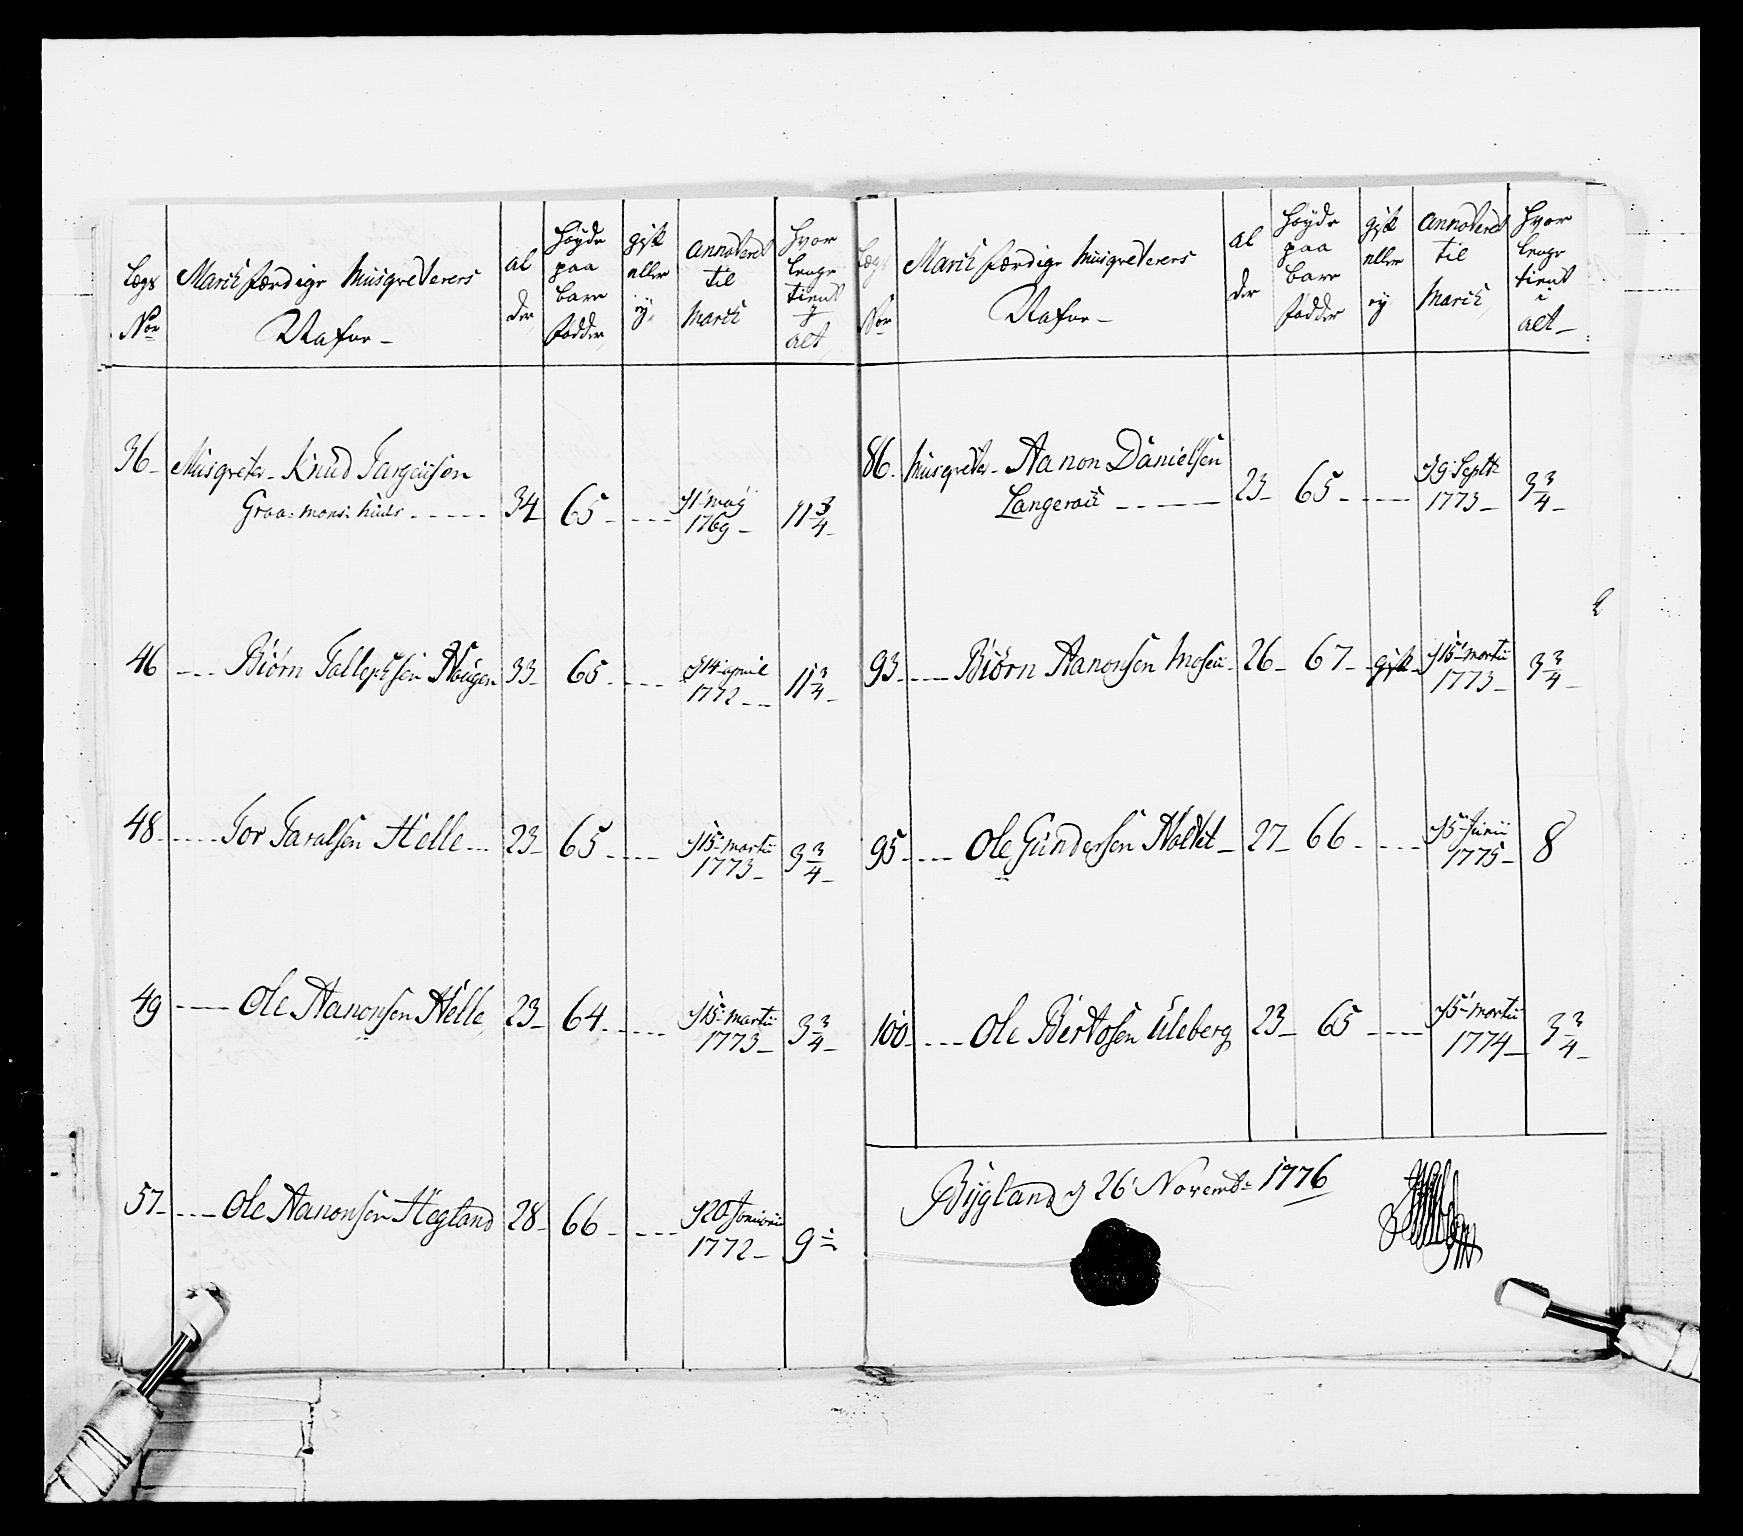 Lægs Nor | March færdige Musqveterers Nafne – | al der | Høyde paa bare Fødder | gift eller ey | annoteret til March | Hvor lenge tient i alt
36 – Musqveter – Knud Targiusen
Graa-mons-huus – 34 – 65 – – – d 1 may 1769 – 11 3/4 –
46 – – Biørn Tallephsen Hougen 33 – 65 – – – d 14 april 1772 – – 11 3/4 –
48 – – – Tor Taralsen Helle – – 23 – 65 – – – d 15 martii 1773 – 3 3/4 –
49 – – Ole Aanonsen Helle 23 – 64 – – – d 15 martii 1773 – 3 3/4 –
57 – – – Ole Aanonsen Hegland 28 – 66 – – – d 20 Januarii 1772 – 9
Lægs Nor | March færdige Musqveterers Nafne – | al der | Høyde paa bare Fødder | gift eller ey | annoteret til March | Hvor lenge tient i alt –
86 – Musqveter – Aanon Danielsen
Langeraα – – – 23 – 65 – – – d 9 Septbr 1773 – 3 3/4 –
93 – – – Biørn Aanonsen Moseu – 26 – 67 – gift – d 15 martii 1773 – 3 3/4 –
95 – – – Ole Gundersen – 27 – 66 – – – d 5 Junii 1775 – 8
100 – – – Ole Bertosen Uleberg 23 – 65 – – – d 5 martii 1774 – 3 3/4 –
Bygland d 26 Novembr 1776